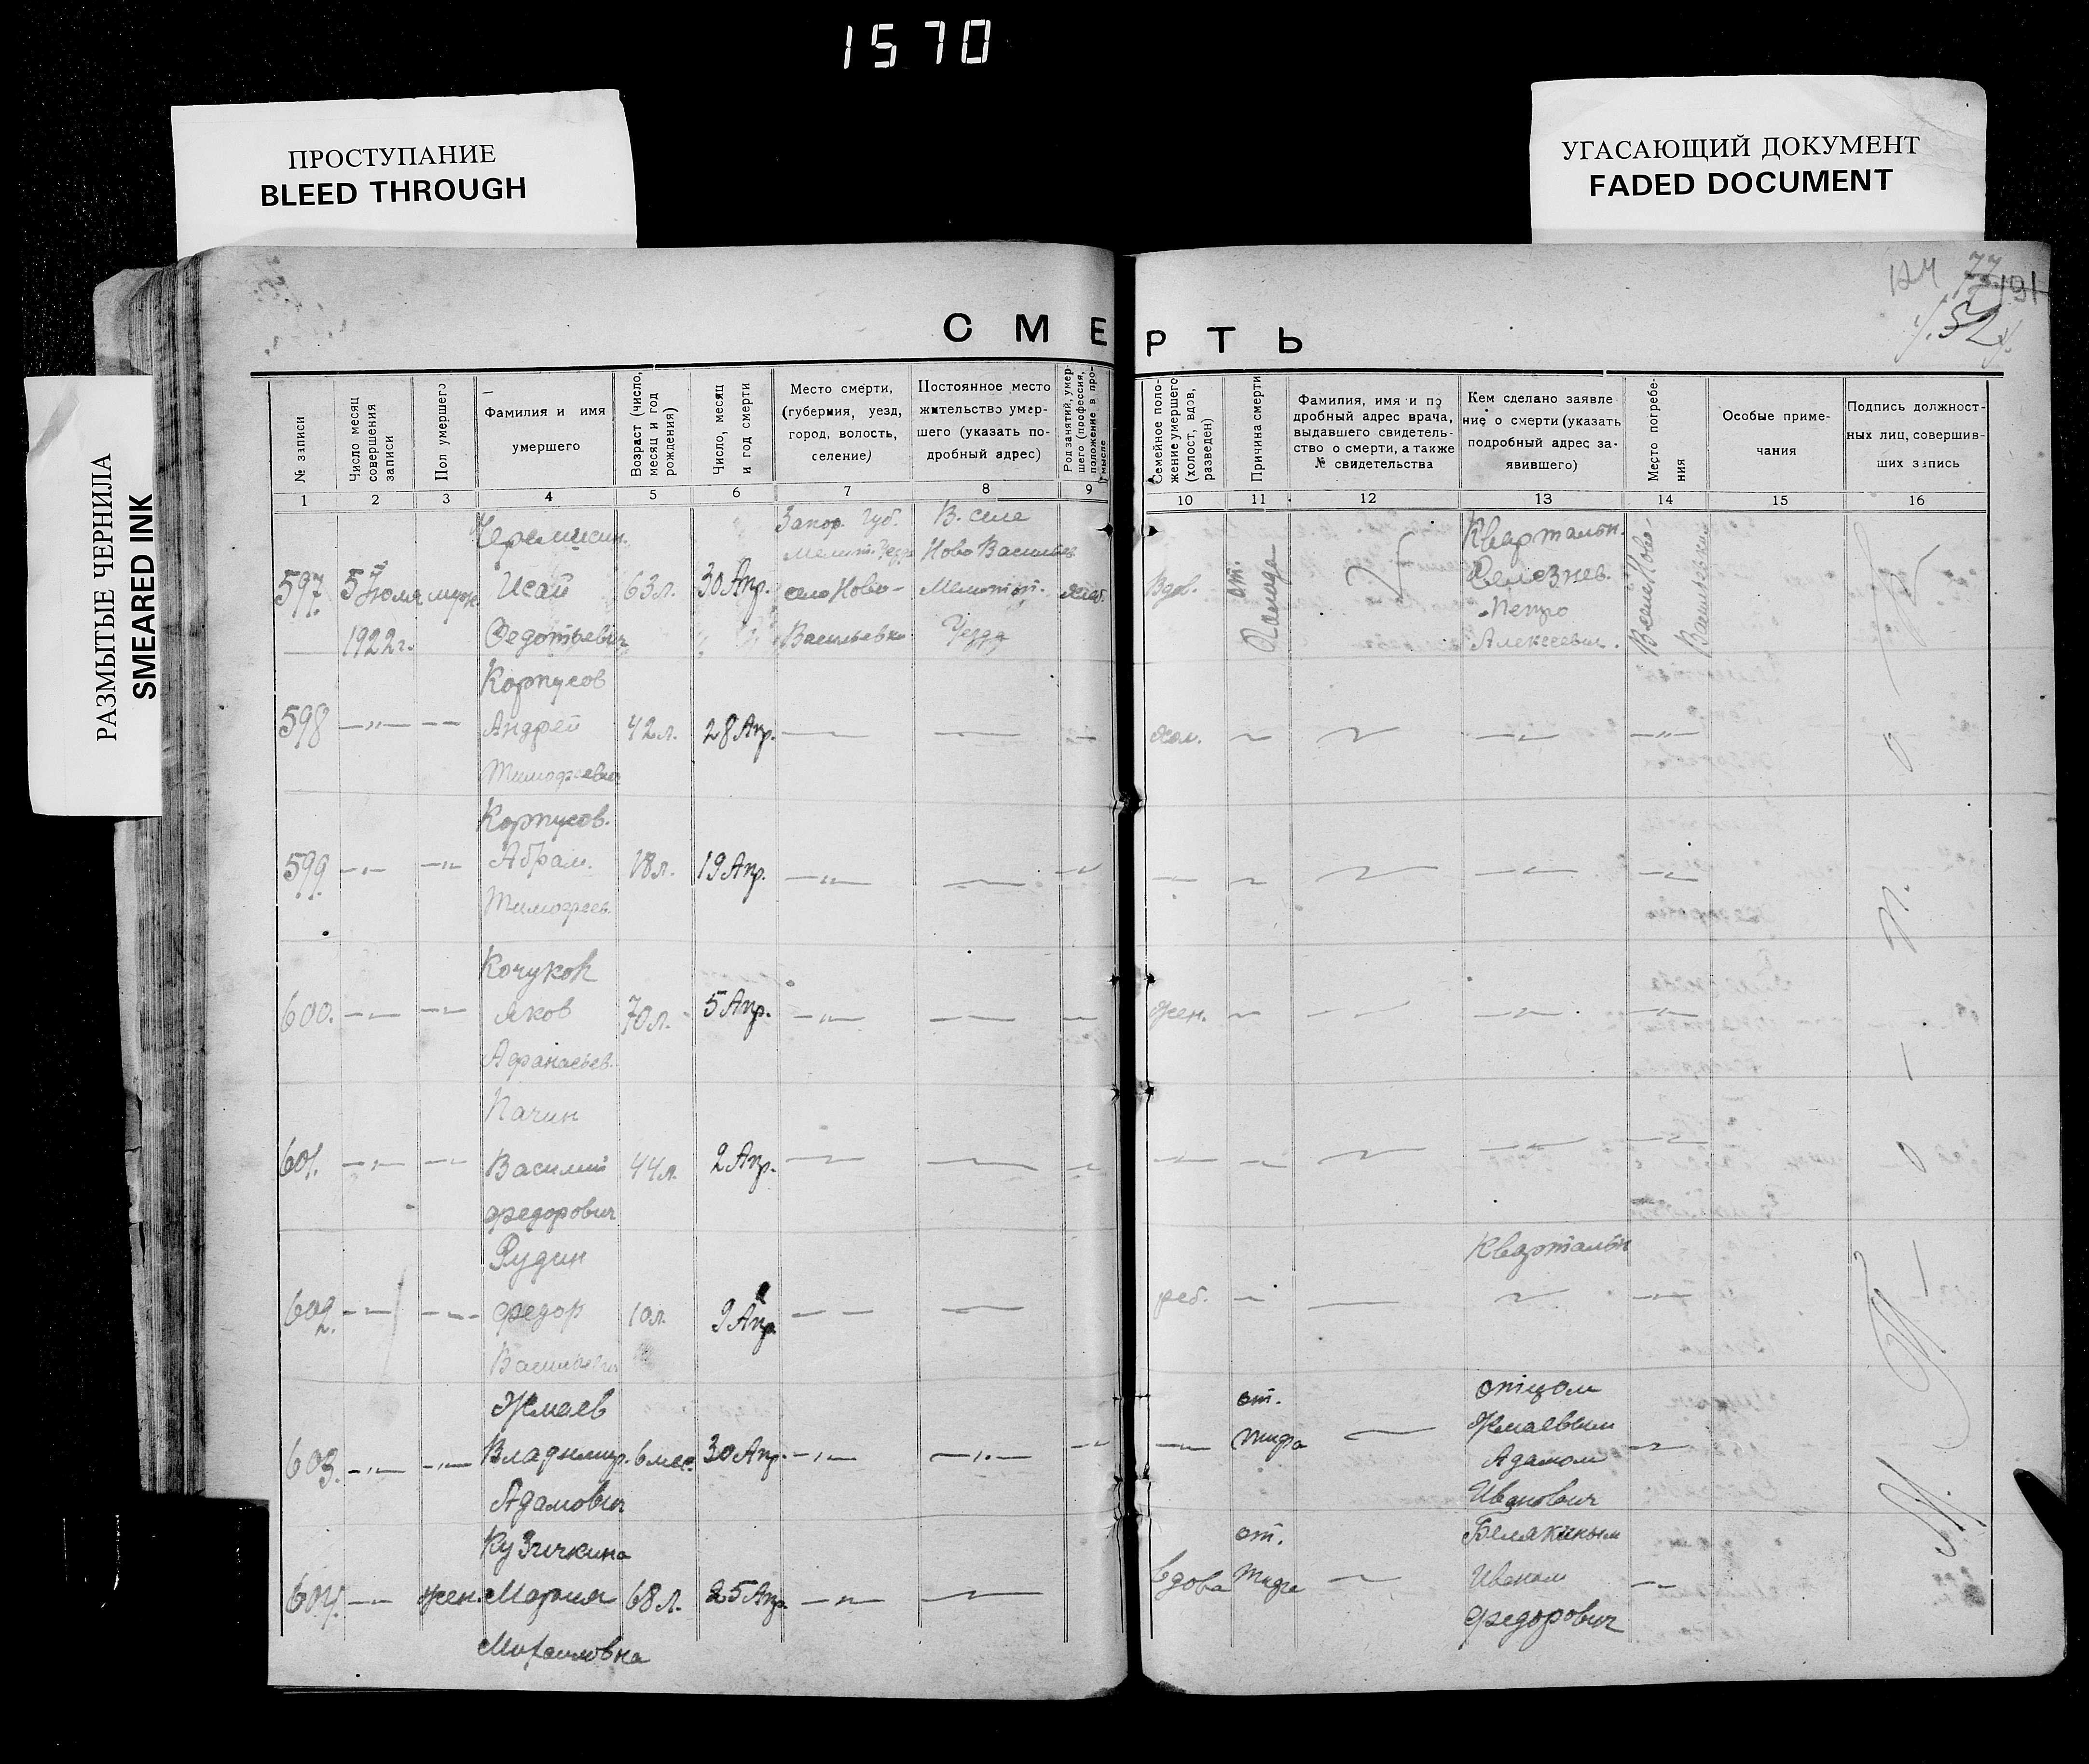 1570
ПРОСТУПАНИЕ
BLEED THROUGH
УГАСАЮЩИЙ ДОКУМЕНТ
FADED DOCUMENT
РАЗМЫТЫЕ ЧЕРНИЛА
SMEARED INK
191
52
СМЕРТЬ
№ записи
Число месяц
совершения
записи
Пол умершего
Фамилия и имя
умершего
Возраст (число,
месяц и год
рождения)
Число, месяц
и год смерти
Место смерти,
(губерния, уезд,
город, волость,
селение)
Постоянное место
жительство умер-
шего (указать по-
дробный адрес)
Род занятий, умер-
шего (профессия,
положение в про-
мысле
Семейное поло-
жение умершего
(холост, вдов,
разведен)
Причина смерти
Фамилия, имя и по
дробный адрес врача,
выдавшего свидетель-
ство о смерти, а также
№ свидетельства
Кем сделано заявле
ние о смерти (указать
подробный адрес за-
явившего)
Место погребе-
ния
Особые приме-
чания
Подпись должност-
ных лиц, совершив-
ших запись
1 2 3 4 5 6 7 8 9 10 11 12 13 14 15 16
597. 5 Июля 1922г. муж.
Черемисин.
Исай
Федотьевич
63л. 30 Апр.
Запор. Губ.
Мелит. Уезд
село Ново-
Васильевка
В. селе
Ново Васильев.
Мелитоп.
Уезда
Вдов.
от.
Голода
Квартальн.
Селезнев.
Петро
Алексеевич.
В селе Ново-
Васильевки
598 —"— ——
Корпусов
Андрей
Тимофеевич
42л. 28 Апр.
хол.
599 —"— —"—
Корпусов.
Абрам.
Тимофеев.
18л. 19 Апр. —"—
600. —"— —"—
Кочуков
Яков
Афанасьев.
70л. 5 Апр. —"—
жен.
601. —"— ——
Пачин
Василий
Федорович
44л. 2 Апр.
602. —"— —"—
Рудин
Федор
Васильевич
10л. 9 Апр.
реб.
Квартальн
603. —"— —"—
Жмаев
Владимир.
Адамович
6 мес. 30 Апр. —"— —"—
от.
тифа
отцом
Жмаевым
Адамом
Иванович
604. —"— жен.
Кузичкина
Мария
Михайловна
68 л. 25 Апр. —"—
вдова
от.
тифа
Белякиным
Иваном
Федорович